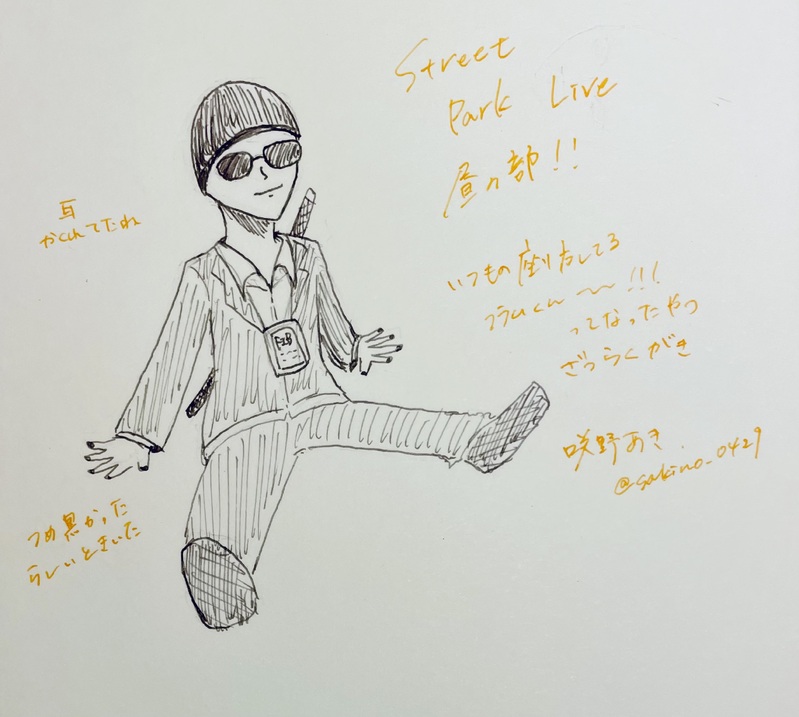 Street
Park Live
昼の部!!
耳
かくれてたね
いつもの座り方してる
フラムくん〜〜!!!
ってなったやつ
ざつらくがき
咲野あき
@sakino_0429
つめ黒かった
らしいときいた